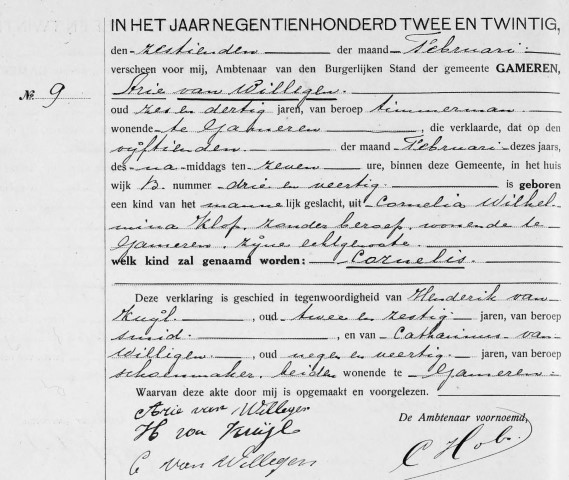 IN HET JAAR NEGENTIENHONDERD TWEE EN TWINTIG,
den zestienden der maand Februari
verscheen voor mij, Ambtenaar van den Burgerlijken Stand der gemeente GAMEREN,
№. 9
Arie van Willigen.
oud zes en dertig jaren, van beroep timmerman
wonende te Gameren, die verklaarde, dat op den
vijftienden. der maand Februari dezes jaars,
des na-middags ten zeven ure, binnen deze Gemeente, in het huis
wijk B. nummer drie en veertig. is geboren
een kind van het mannelijk geslacht, uit Cornelia Wilhel-
mina Klop, zonder beroep, wonende te
Gameren, zijne echtgenoote.
welk kind zal genaamd worden: Cornelis.
Deze verklaring is geschied in tegenwoordigheid van Henderik van
Zuijl., oud twee en zestig jaren, van beroep
smid, en van Catharinus van
Willigen, oud negen en veertig. jaren, van beroep
schoenmaker, beiden wonende te Gameren
Waarvan deze akte door mij is opgemaakt en voorgelezen.
Arie van Willegen
De Ambtenaar voornoemd,
H van Zuijl
C Hob.
C van Willegen